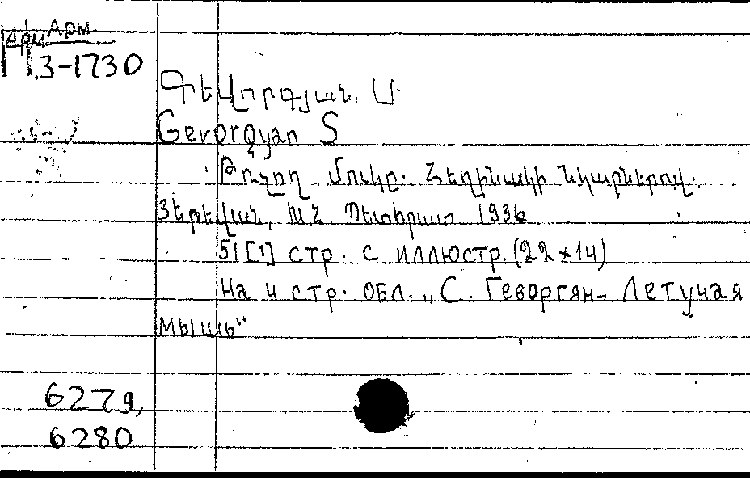 Арм Арм
П 3-1730
Գեվորգյան. Ս
Gevorgyan S
Թռչող մուկը. Հեղինակի նկարներով.
Յերեվան, ԽՀ Պետհրատ 1936
51 [1] стр. с иллюстр. (22×14)
На 4 стр. обл. „С. Геворгян – Летучая
мышь"
6279,
6280